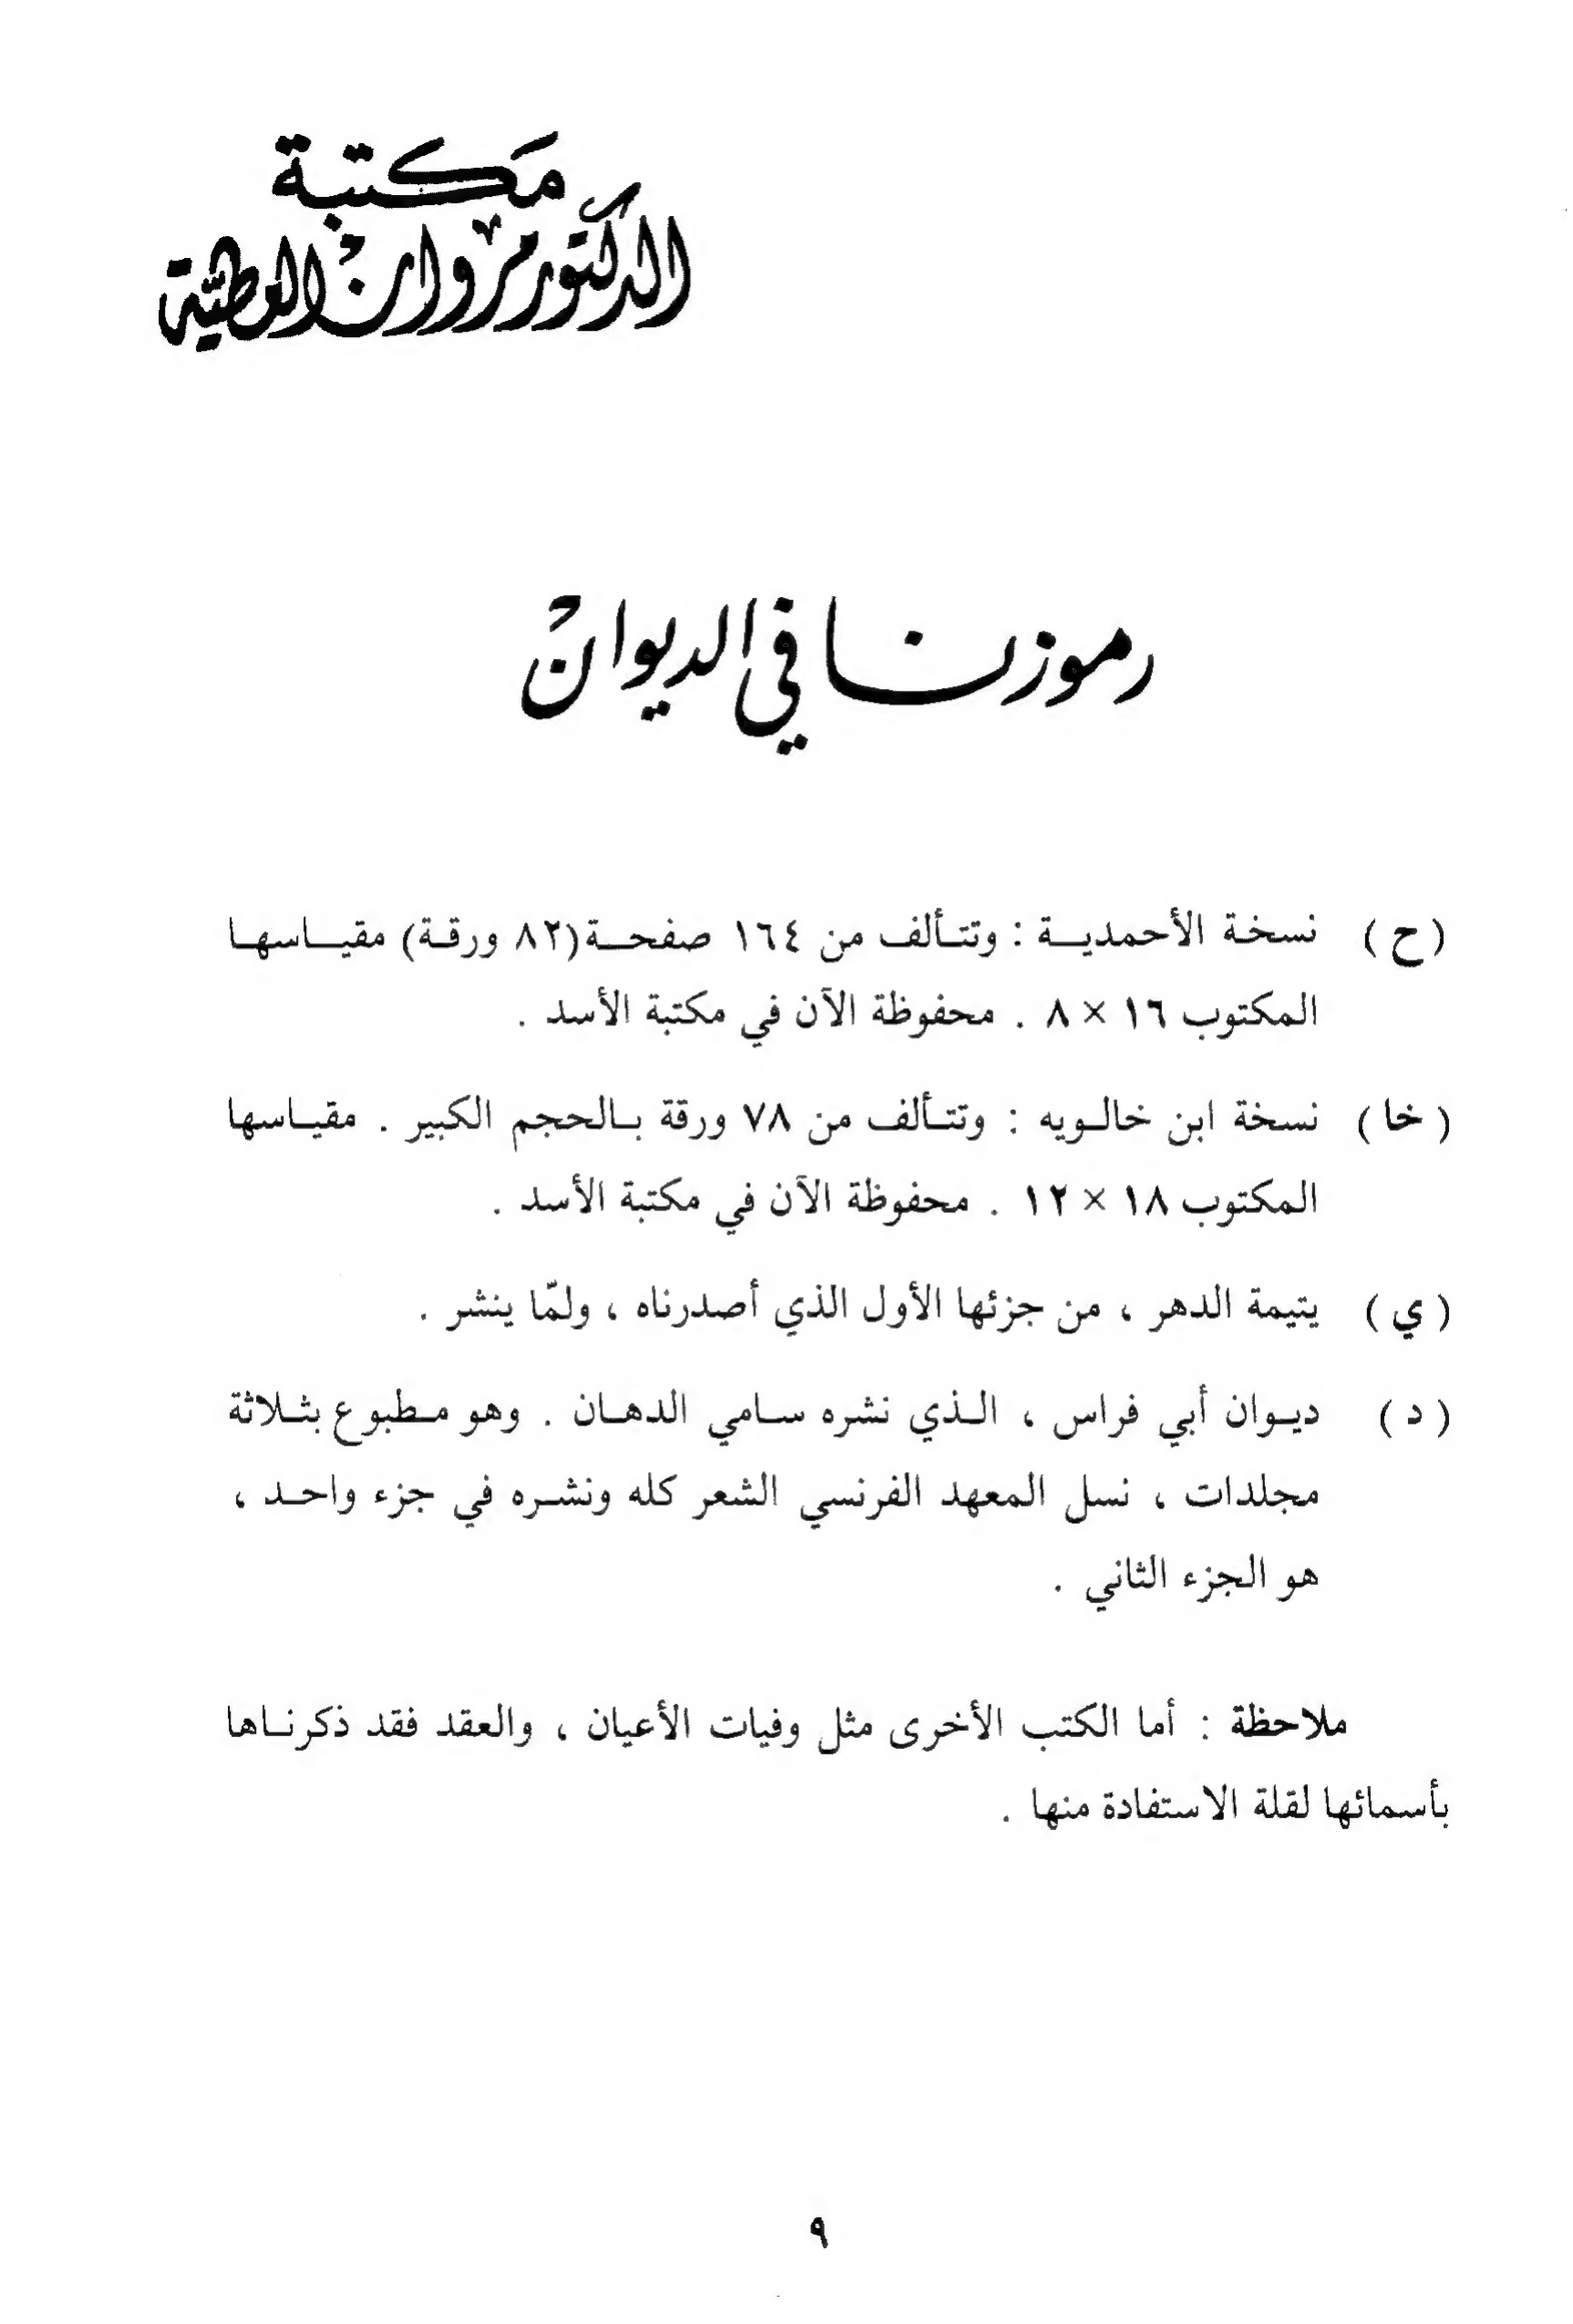 مكتبة
الدكتور مروان العطية
رموزنا في الديوان
( ح ) نسخة الأحمدية : وتتألف من ١٦٤ صفحة (٨٢ ورقة) مقياسها
المكتوب ١٦ × ٨ . محفوظة الآن في مكتبة الأسد .
( خا ) نسخة ابن خالويه : وتتألف من ٧٨ ورقة بالحجم الكبير . مقياسها
المكتوب ١٨ × ١٢ . محفوظة الآن في مكتبة الأسد .
( ي ) يتيمة الدهر ، من جزئها الأول الذي أصدرناه ، ولمّا ينشر .
( د ) ديوان أبي فراس ، الذي نشره سامي الدهان . وهو مطبوع بثلاثة
مجلدات ، نسل المعهد الفرنسي الشعر كله ونشره في جزء واحد ،
هو الجزء الثاني .
ملاحظة : أما الكتب الأخرى مثل وفيات الأعيان ، والعقد فقد ذكرناها
بأسمائها لقلة الاستفادة منها .
٩